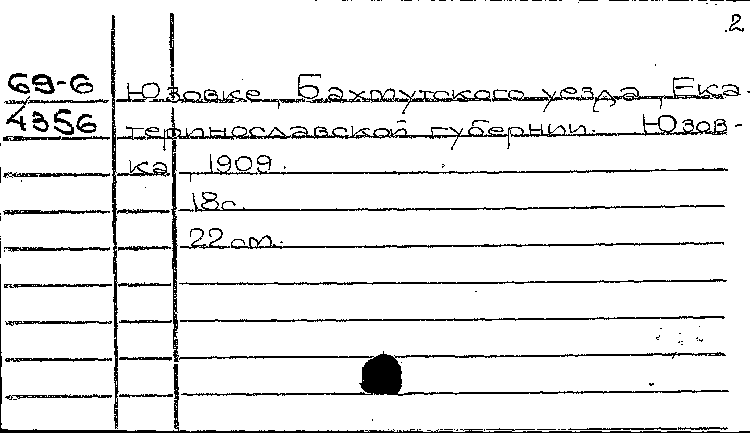 2
69-6 Юзовке, Бахмутского уезда, Ека-
4356 теринославской губернии. Юзов-
ка, 1909.
18с.
22 cm.